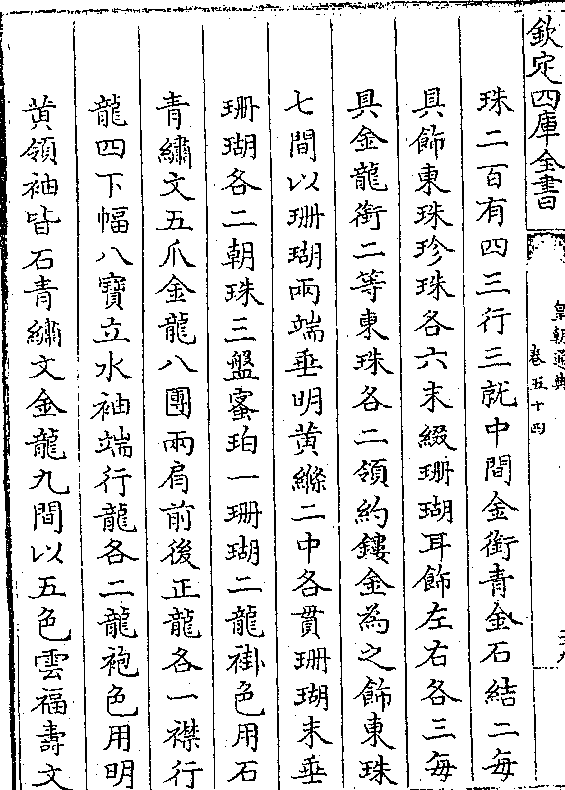 欽定四庫全書
皇朝通典
卷五十四
珠二百有四三行三就中間金銜青金石結二每
具飾東珠珍珠各六末綴珊瑚耳飾左右各三每
具金龍銜二等東珠各二領約鏤金為之飾東珠
七間以珊瑚兩端垂明黃縧二中各貫珊瑚末垂
珊瑚各二朝珠三盤蜜珀一珊瑚二龍褂色用石
青繡文五爪金龍八團兩肩前後正龍各一襟行
龍四下幅八寶立水袖端行龍各二龍袍色用明
黃領袖皆石青繡文金龍九間以五色雲福壽文